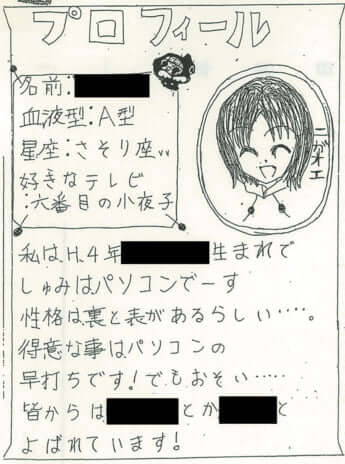 プロフィール
名前:
血液型:A型
星座:さそり座
好きなテレビ
:六番目の小夜子
ニガオエ
私は、H.4年 生まれで
しゅみはパソコンでーす
性格は裏と表があるらしい‥‥。
得意な事はパソコンの
早打ちです!でもおそい‥‥‥
皆からは とか と
よばれています!